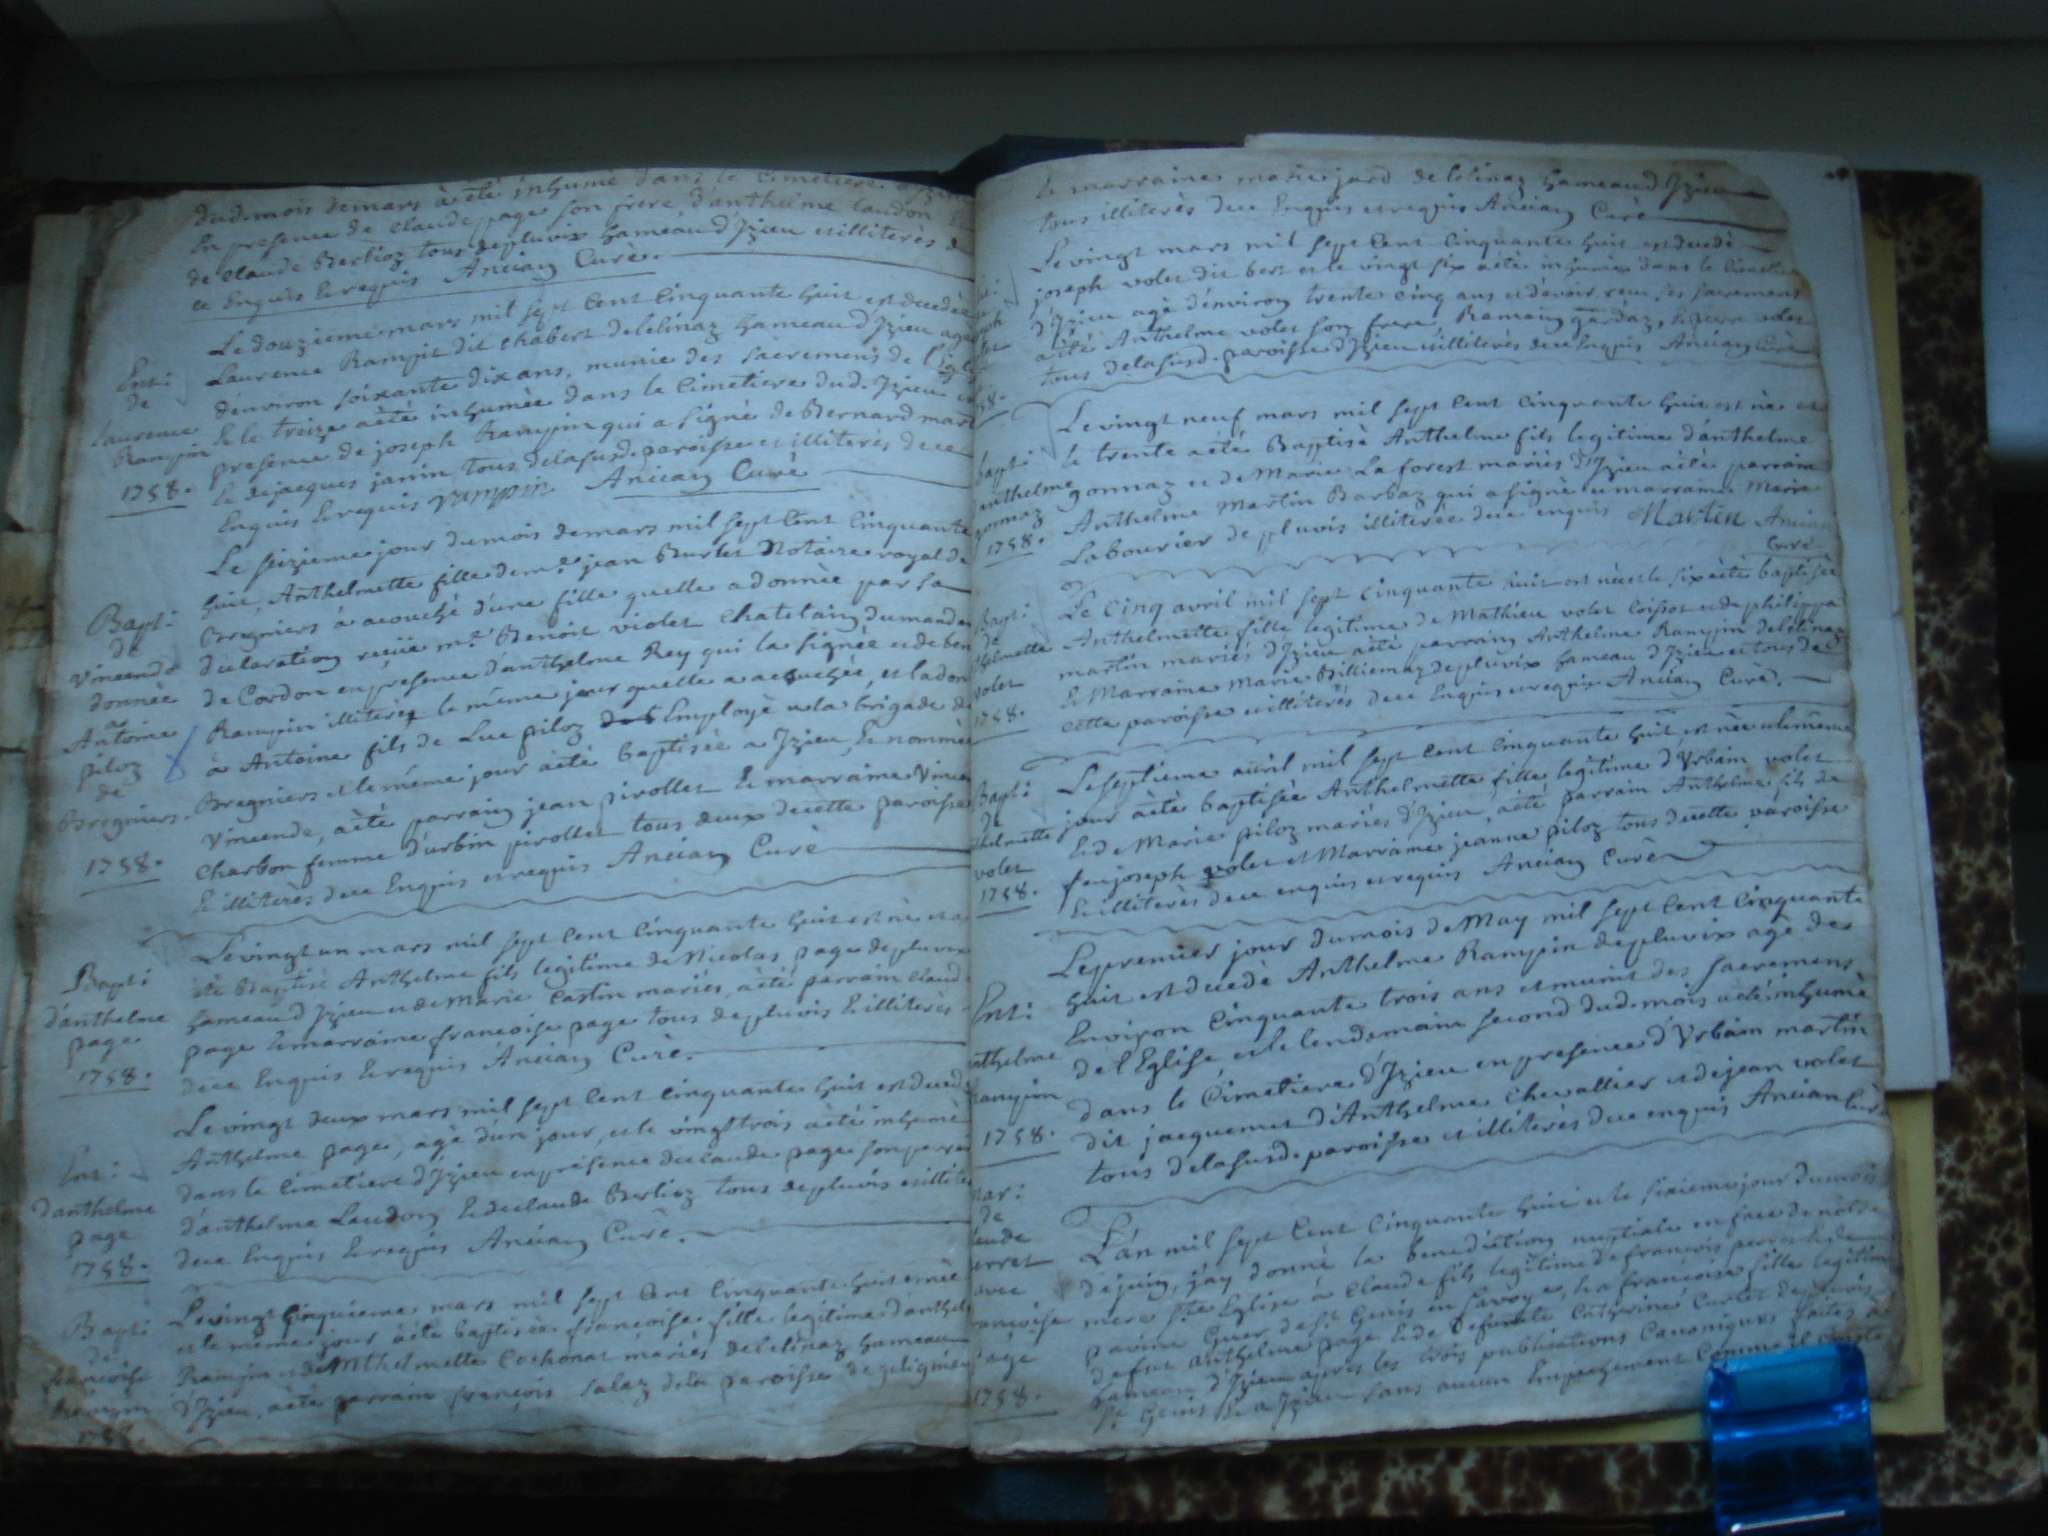 dud. mois de mars à été inhumé dans le Cimetiere
En presence de claude page son frere d'anthelme landon
de claude Berlioz tous de pluvix hameau d'Izieu et illiterès de
ce Enquis Et requis Ancian Curè.
Ent:
de
Laurence
Rampin
1758.
Le douzieme mars mil sept Cent Cinquante huit est decedèe
Laurence Rampin dit Chabert de lelinaz hameau d'Izieu agee
d'environ soixante dix ans, munie des sacremens de l'Eglise
Et le treize a été inhumèe dans le Cimetiere dud. Izieu en
presence de joseph Rampin qui a signè de Bernard mart
Et de jacques janin tous de la susd. paroisse et illiterès de ce
Enquis Et requis Rampin Ancian Curè
Bapt:
de
Vincende
donnèe
a
Antoine
piloz
de
Bregniers.
1758.
Le seizieme jour du mois de mars mil sept Cent Cinquante
huit, Anthelmette fille de me. jean Burlet Notaire royal de
Bregniers à acouché d'une fille quelle a donnèe par sa
declaration reçüe me. Benoit violet Chatelain du mandem
de Cordon en presence d'anthelme Rey qui la signèe et de ben
Rampin illiterès le même jour quelle a acouchèe, et la don
à Antoine fils de Luc piloz Employè a la brigade de
Bregniers et le même jour aété baptisèe a Izieu, Et nommèe
Vincende, aèté parrain jean pirollet Et marraine Vincen
Charbon femme d'urbin pirollet tous deux de cette paroisse
Et illiterès de ce Enquis et requis Ancian Curè
Bapt:
d'anthelme
page
1758.
Le vingt un mars mil sept Cent Cinquante huit est né et a
èté Baptisè Anthelme fils legitime de Nicolas page de pluvix
hameau d'Izieu et de Marie Castin mariés, aèté parrain claude
page Et marraine françoise page tous de pluvix Et illiterès
de ce Enquis Et requis Ancian Curè.
Ent:
d'anthelme
page
1758.
Le vingt deux mars mil sept Cent Cinquante huit est deced
Anthelme page, agè d'un jour, et le vingt trois aèté inhumè
dans le Cimetiere d'Izieu en presence de claude page son perrei
d'anthelme Laudon Et de claude Berlioz tous de pluvix et illite
de ce Enquis Et requis Ancian Curè.
Bapt:
de
françoise
Rampin
1758.
Le vingt Cinquieme mars mil sept Cent Cinquante huit est nèe
et le même jour aèté baptisèe françoise fille legitime d'anthel
Rampin et de Anthelmette Cochonat mariés de lelinaz hameau
d'Izieu, aèté parrain françois salaz de la paroisse de
Et marraine marie jard de lelinaz hameau d'Izieu
tous illiterès de ce Enquis et requis Ancian Curè
1758.
Le vingt mars mil sept Cent Cinquante huit est decedè
joseph volet dit bert et le vingt six aèté inhumè dans le Cimetiere
d'Izieu agè d'environ trente cinq ans et d'avoir reçu ses sacremens
aèté Anthelme volet son frere, Romain gardaz, Et pierre volet
tous de la susd. paroisse d'Izieu et illiterès de ce Enquis Ancian Curè
Bapt:
anthelme
gonnaz
1758.
Le vingt neuf mars mil sept Cent Cinquante huit est nè et
le trente aèté Baptisè Anthelme fils legitime d'anthelme
gonnaz et de Marie La forest mariés d'Izieu aèté parrain
Anthelme Martin Barbaz qui a signè et marraine Marie
Labourier de pluvis illiterèe de ce enquis Martin Ancian
Curè
Bapt:
de
thelmette
volet
1758.
Le Cinq avril mil sept cinquante huit est nèe et le six aèté baptisèe
Anthelmette fille legitime de Mathieu volet loissot et de philippa
martin mariés d'Izieu aèté parrain Anthelme Rampin de lelinaz
Et Marraine Marie Billiemaz de pluvix hameau d'Izieu et tous de
cette paroisse et illiterés de ce Enquis et requis Ancian Curè.
Bapt:
de
thelmette
volet
1758.
Le septieme avril mil sept Cent Cinquante huit est nèe et le même
jour aèté baptisèe Anthelmette fille legitime d'Urbain volet
Et de Marie piloz mariés d'Izieu, aèté parrain Anthelme fils de
feu joseph volet et Marraine jeanne piloz tous de cette paroisse
Et illiterès de ce enquis et requis Ancian Curè
Ent:
nthelme
Rampin
1758.
Le premier jour du mois de May mil sept Cent Cinquante
huit est decedè Anthelme Rampin de pluvix agè des
Environ Cinquante trois ans et munit des sacremens
de l'Eglise, et le lendemain second dud. mois aèté inhumè
dans le Cimetiere d'Izieu en presence d'Urbain martin
dit jacquemet d'Anthelme Chevallier et de jean volet
tous de la susd. paroisse et illiterès de ce enquis Ancian Curè
Mar:
de
laude
erret
avec
rançoise
page
1758.
L'an mil sept Cent Cinquante huit et le sixieme jour du mois
de juin, j'ay donnè la benediction nuptiale en face de nôtre
mere Ste. Eglise à Claude fils legitime de francois perret Et de
pavine guer de st. Genis en Savoye, Et a françoise fille legitime
defut anthelme page Et de defunte Catherine Curtet de pluvis
hameau d'Izieu apres les trois publications Canoniques faites a
st. Genis Et a Izieu sans aucun Empechement Comme il